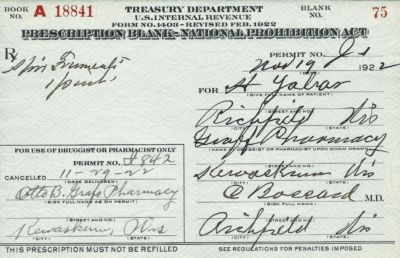 BOOK NO. A 18841
TREASURY DEPARTMENT
U.S. INTERNAL REVENUE
FORM NO. 1403-REVISED FEB. 1922
BLANK NO. 75
PRESCRIPTION BLANK-NATIONAL PROHIBITION ACT
Rx
PERMIT NO.
Spir Frumenti
1 pint
Nov 19 1922
FOR
(GIVE FULL NAME OF PATIENT)
Richfield Wis
(CITY) (STATE)
Graff Pharmacy
(NAME OF DRUGGIST OR PHARMACIST, UPON WHOM DRAWN)
Kewaskum Wis
(CITY) (STATE)
C Bossard M.D.
(SIGN FULL NAME)
(STREET AND NO.)
Richfield Wis
(CITY) (STATE)
FOR USE OF DRUGGIST OR PHARMACIST ONLY
PERMIT NO. H842
CANCELLED 11-29-22
(DATE DELIVERED)
Otto B. Graf Pharmacy
(SIGN FULL NAME AS ON PERMIT)
(STREET AND NO.)
Kewaskum, Wis
(CITY) (STATE)
THIS PRESCRIPTION MUST NOT BE REFILLED
SEE REGULATIONS FOR PENALTIES IMPOSED